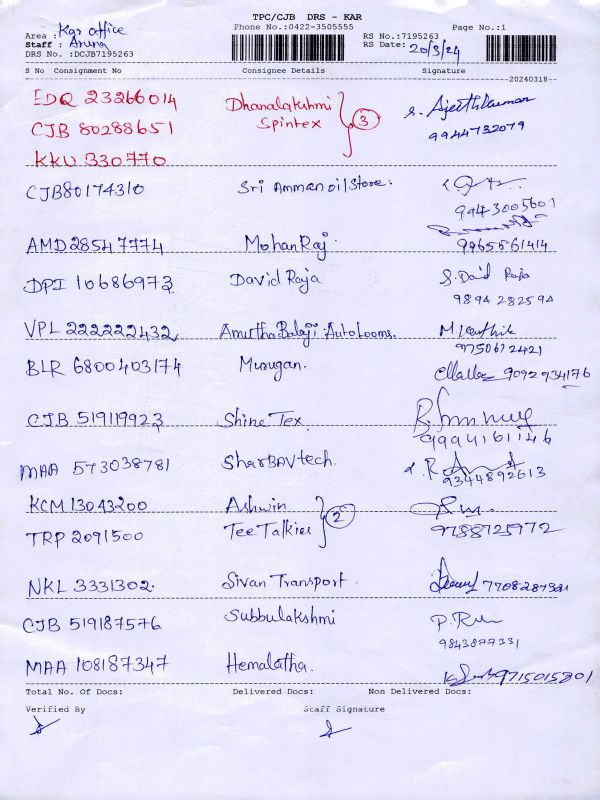 TPC/CJB DRS - KAR
Phone No.:0422-3505555
RS No.:7195263
Page No.:1
Area : Kar office
Staff : Aruna
RS Date: 20/3/24
DRS No. :DCJB7195263
S No Consignment No Consignee Details Signature
20240318
EDQ 23266014 Dhanalakshmi S. Ajeethkumar
CJB 80288651 Spintex 3 9944732079
KKU 330770
CJB80174310 Sri Amman oil Store.
9943005601
AMD 28547774 Mohan Raj. 9965561414
DPI 10686973 David Raja S. David Raja
9894282594
VPL 222222432 Amurtha Balaji Autolooms. M Karthik
9750672421
BLR 6800403174 Murugan. 9092934176
CJB 519119923 Shine Tex.
9994161146
MAA 573038781 SharBAV tech.
9344892613
KCM 13043200 Ashwin
TRP 2091500 Tee Talkies 2 9788725972
NKL 3331302. Sivan Transport. 7708287321
CJB 519187576 Subbulakshmi
9843877331
MAA 108187347 Hemalatha. 9715015801
Total No. Of Docs: Delivered Docs: Non Delivered Docs:
Verified By Staff Signature